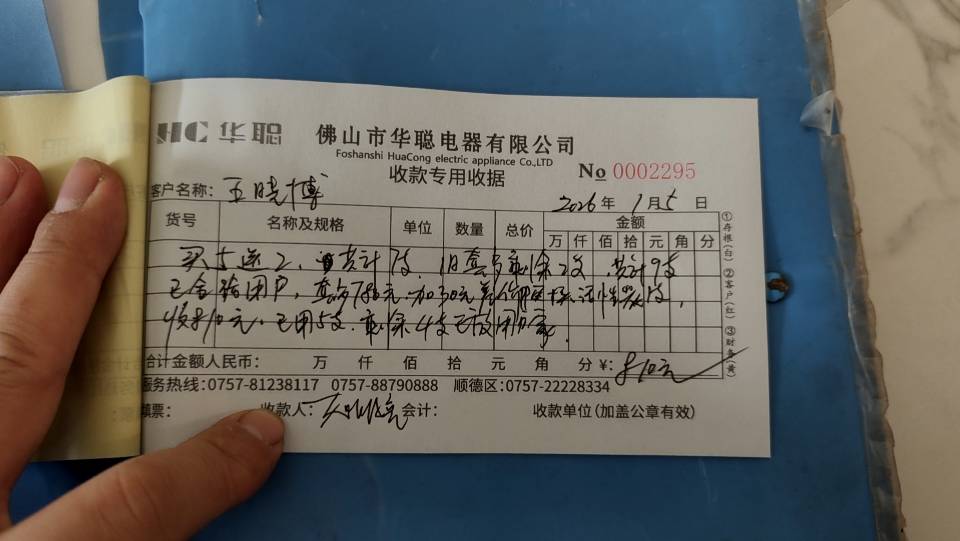 HC 华聪
佛山市华聪电器有限公司
Foshanshi HuaCong electric appliance Co.,LTD
收款专用收据
No 0002295
客户名称: 王晓博
2026 年 1 月 5 日
货号 名称及规格 单位 数量 总价 金额
万 仟 佰 拾 元 角 分
买5送2, 共计7支. 旧套参剩余2支 共计9支
已全给用户, 套餐780元, 加30元差价 活性炭1支,
收810元. 已用5支. 剩余4支已放用户家.
合计金额人民币: 万 仟 佰 拾 元 角 分 ¥: 810元
服务热线:0757-81238117 0757-88790888 顺德区:0757-22228334
填票: 收款人: 会计: 收款单位(加盖公章有效)
①存根(白) ②客户(红) ③财务(黄)